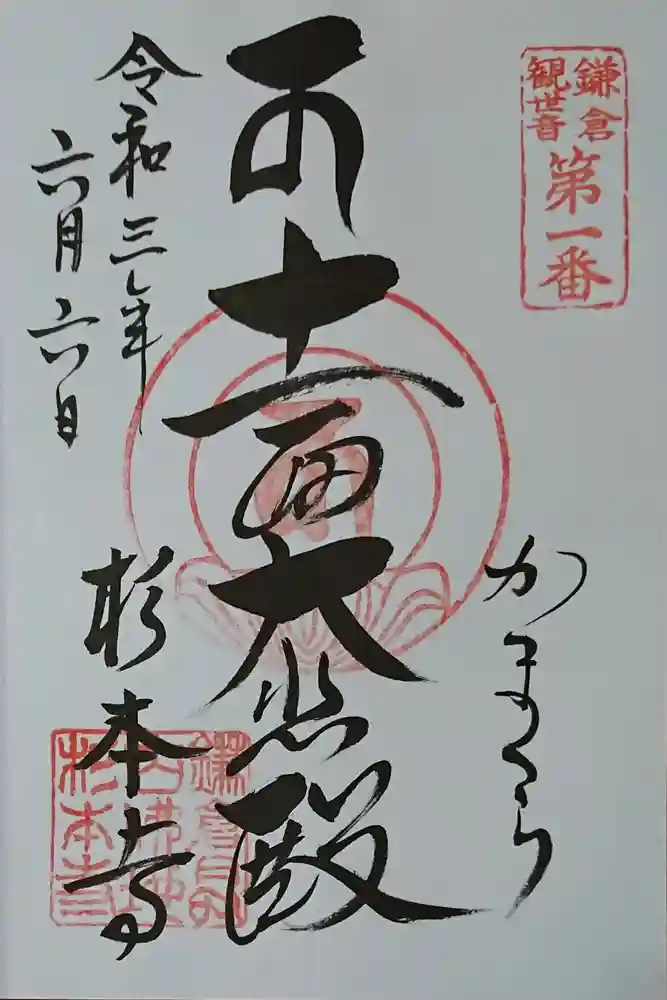 鎌倉
観世音
第一番
かまくら
十一面大悲殿
令和三年
六月六日
杉本寺
杉本寺